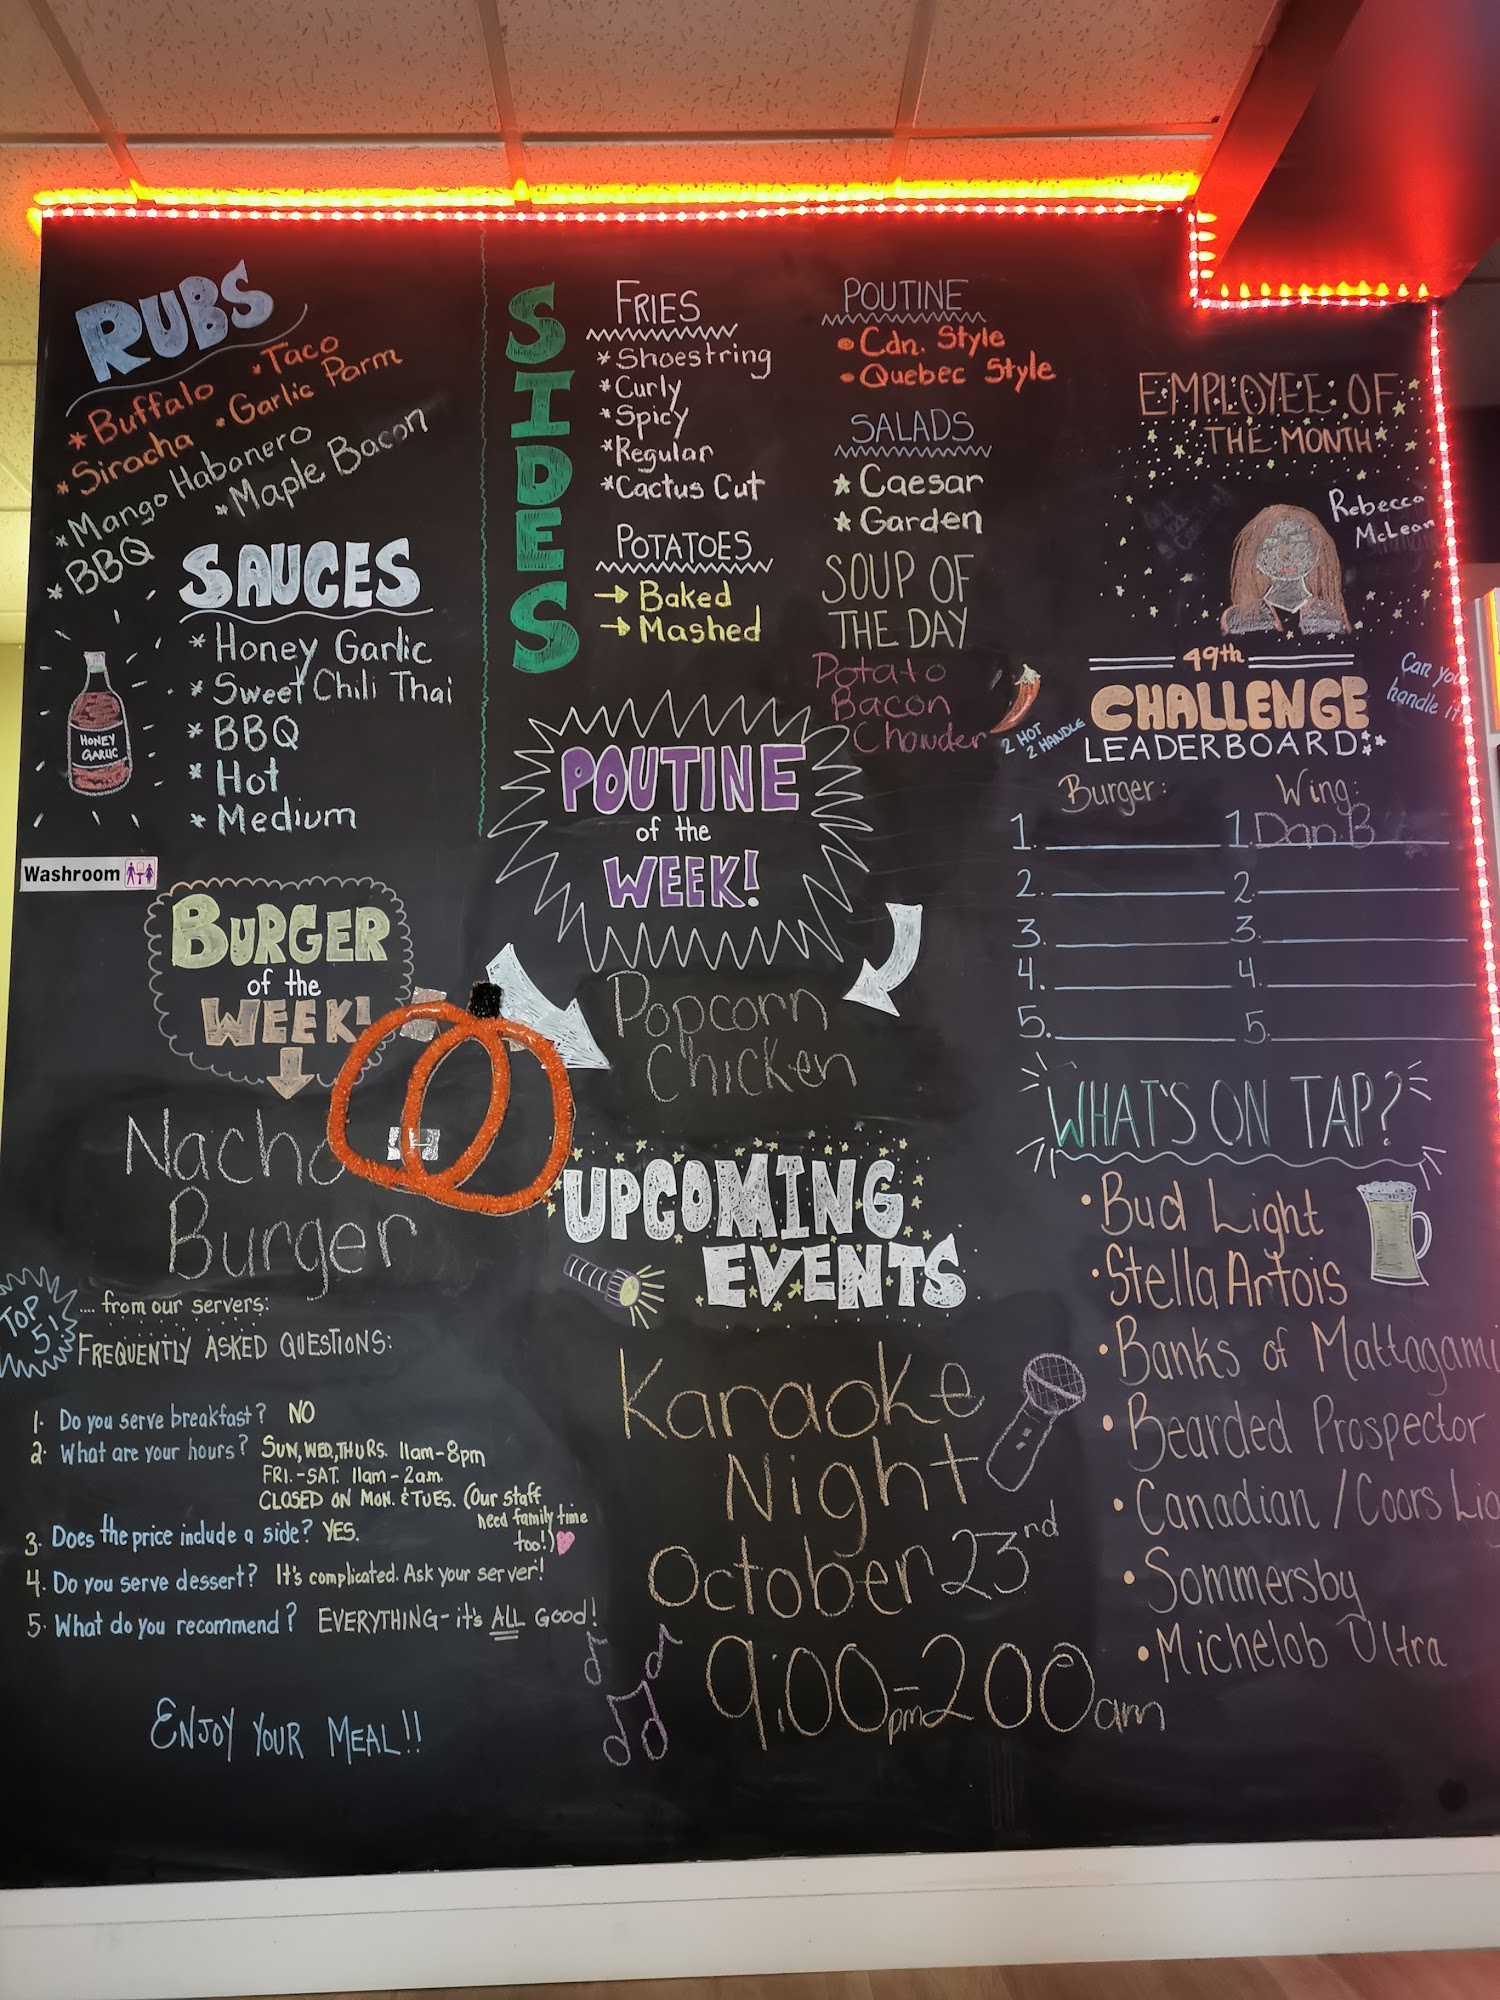 RUBS
* Buffalo * Taco
* Siracha * Garlic Parm
* Mango Habanero
* BBQ * Maple Bacon
SAUCES
* Honey Garlic
* Sweet Chili Thai
* BBQ
* Hot
* Medium
HONEY
GARLIC
Washroom
SIDES
FRIES
* Shoestring
* Curly
* Spicy
* Regular
* Cactus Cut
POTATOES
→ Baked
→ Mashed
POUTINE
• Cdn. Style
• Quebec Style
SALADS
★ Caesar
★ Garden
SOUP OF
THE DAY
Potato
Bacon
Chowder
EMPLOYEE OF
THE MONTH
Rebecca
McLean
49th
CHALLENGE
LEADERBOARD
2 HOT
2 HANDLE
Can you
handle it
Burger: Wing:
1. 1. Dan B
2. 2.
3. 3.
4. 4.
5. 5.
POUTINE
of the
WEEK!
Popcorn
Chicken
BURGER
of the
WEEK!
Nacho
Burger
UPCOMING
EVENTS
Karaoke
Night
October 23rd
9:00pm-200am
WHAT'S ON TAP?
• Bud Light
• Stella Artois
• Banks of Mattagami
• Bearded Prospector
• Canadian / Coors Lig
• Sommersby
• Michelob Ultra
TOP
5!
.... from our servers:
FREQUENTLY ASKED QUESTIONS:
1. Do you serve breakfast? NO
2. What are your hours? SUN, WED, THURS. 11am-8pm
FRI.-SAT. 11am-2am.
CLOSED ON MON. & TUES. (Our staff
need family time
too!)
3. Does the price include a side? YES.
4. Do you serve dessert? It's complicated. Ask your server!
5. What do you recommend? EVERYTHING-it's ALL GOOD!
ENJOY YOUR MEAL!!